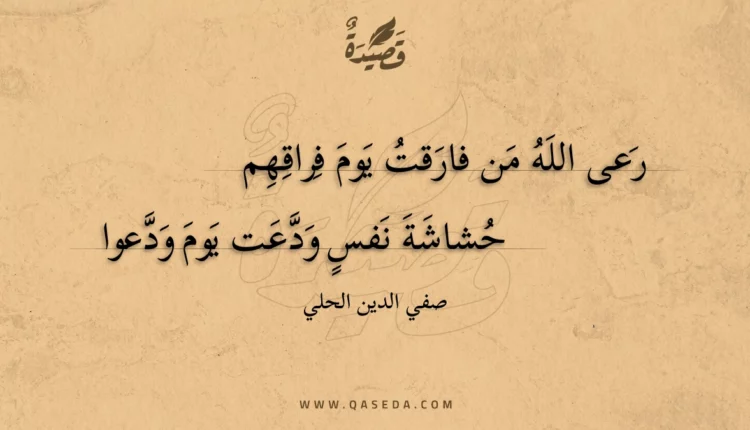 قَصِيدَةٌ
رَعى اللَهُ مَن فارَقتُ يَومَ فِراقِهِم
حُشاشَةَ نَفسٍ وَدَّعَت يَومَ وَدَّعوا
صفي الدين الحلي
WWW.QASEDA.COM